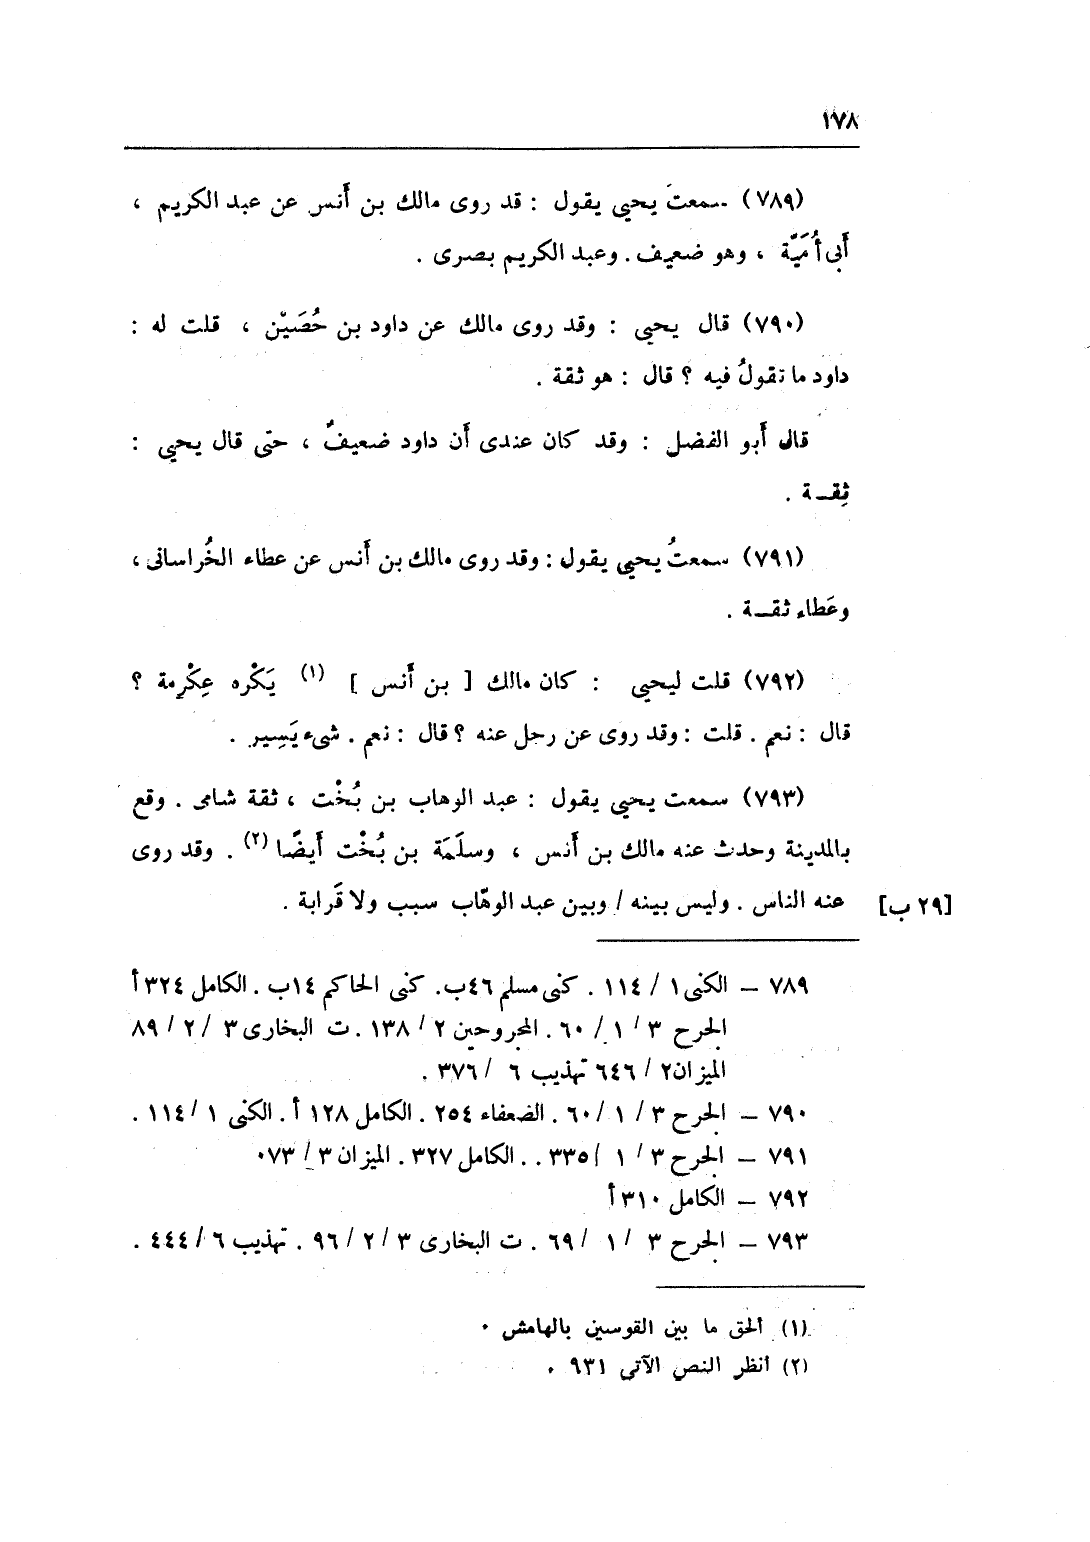 ١٧٨
(٧٨٩) سمعت يحيى يقول : قد روى مالك بن أَنس عن عبد الكريم ،
أَبى أُمَيَّة ، وهو ضعيف . وعبد الكريم بصرى .
(٧٩٠) قال يحيى : وقد روى مالك عن داود بن حُصَيْن ، قلت له :
داود ما تقولُ فيه ؟ قال : هو ثقة .
قال أَبو الفضل : وقد كان عندى أَن داود ضعيفٌ ، حتى قال يحيى :
ثِقـة .
(٧٩١) سمعتُ يحيى يقول : وقد روى مالك بن أَنس عن عطاء الخُراسانى ،
وعَطاء ثقـة .
(٧٩٢) قلت ليحيى : كان مالك [ بن أَنس ] (١) يَكْره عِكْرِمة ؟
قال : نعم . قلت : وقد روى عن رجل عنه ؟ قال : نعم . شىء يَسِير .
(٧٩٣) سمعت يحيى يقول : عبد الوهاب بن بُخْت ، ثقة شامى . وقع
بالمدينة وحدث عنه مالك بن أَنس ، وسلَمَة بن بُخْت أَيضًا (٢) . وقد روى
عنه الناس . وليس بينه / وبين عبد الوهّاب سبب ولا قَرابة .
[٢٩ ب]
٧٨٩ – الكنى ١ / ١١٤ . كنى مسلم ٤٦ب. كنى الحاكم ١٤ب . الكامل ٣٢٤ أ
الجرح ٣ / ١ / ٦٠ . المجروحين ٢ / ١٣٨ . ت البخارى ٣ / ٢ / ٨٩
الميزان ٢ / ٦٤٦ تهذيب ٦ / ٣٧٦ .
٧٩٠ – الجرح ٣ / ١ / ٦٠ . الضعفاء ٢٥٤ . الكامل ١٢٨ أ . الكنى ١ / ١١٤ .
٧٩١ – الجرح ٣ / ١ / ٣٣٥ . . الكامل ٣٢٧ . الميزان ٣ / ٠٧٣
٧٩٢ – الكامل ٣١٠ أ
٧٩٣ – الجرح ٣ / ١ / ٦٩ . ت البخارى ٣ / ٢ / ٩٦ . تهذيب ٦ / ٤٤٤ .
(١) ألحق ما بين القوسين بالهامش .
(٢) أنظر النص الآتى ٩٣١ .